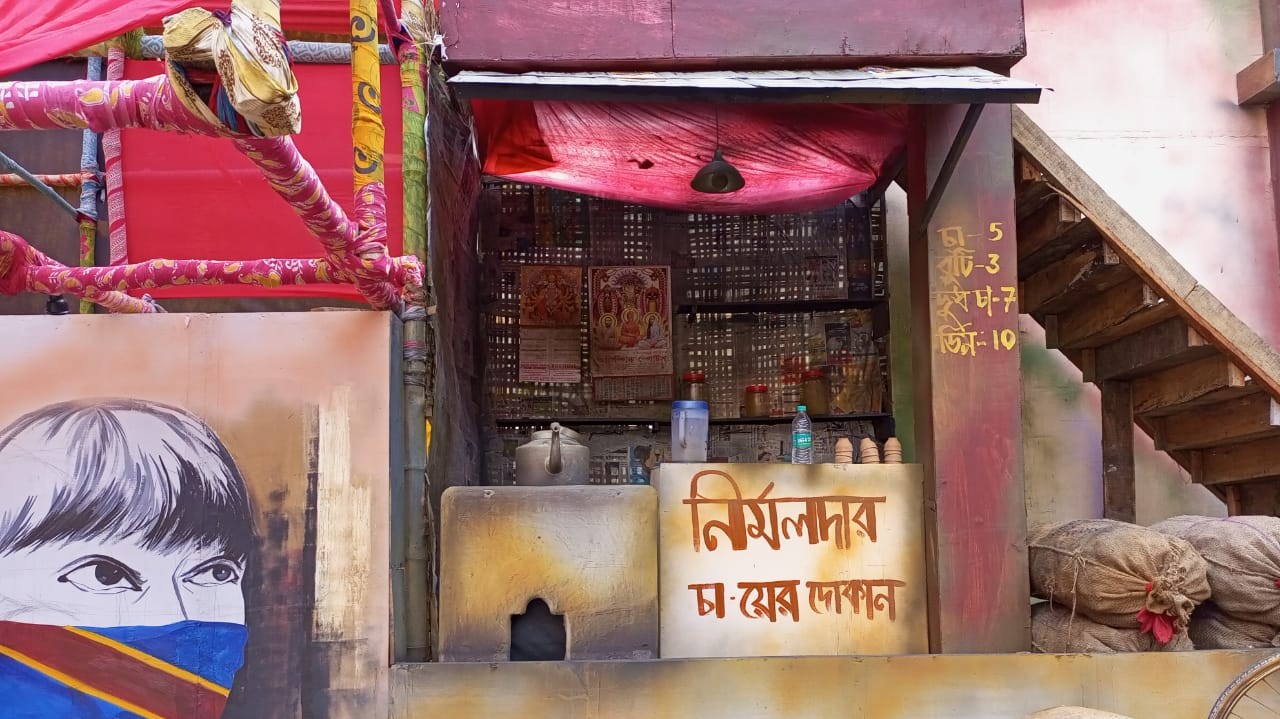 চা - 5
রুটি - 3
দুধ চা - 7
ডিম - 10
নির্মলদার
চা-য়ের দোকান